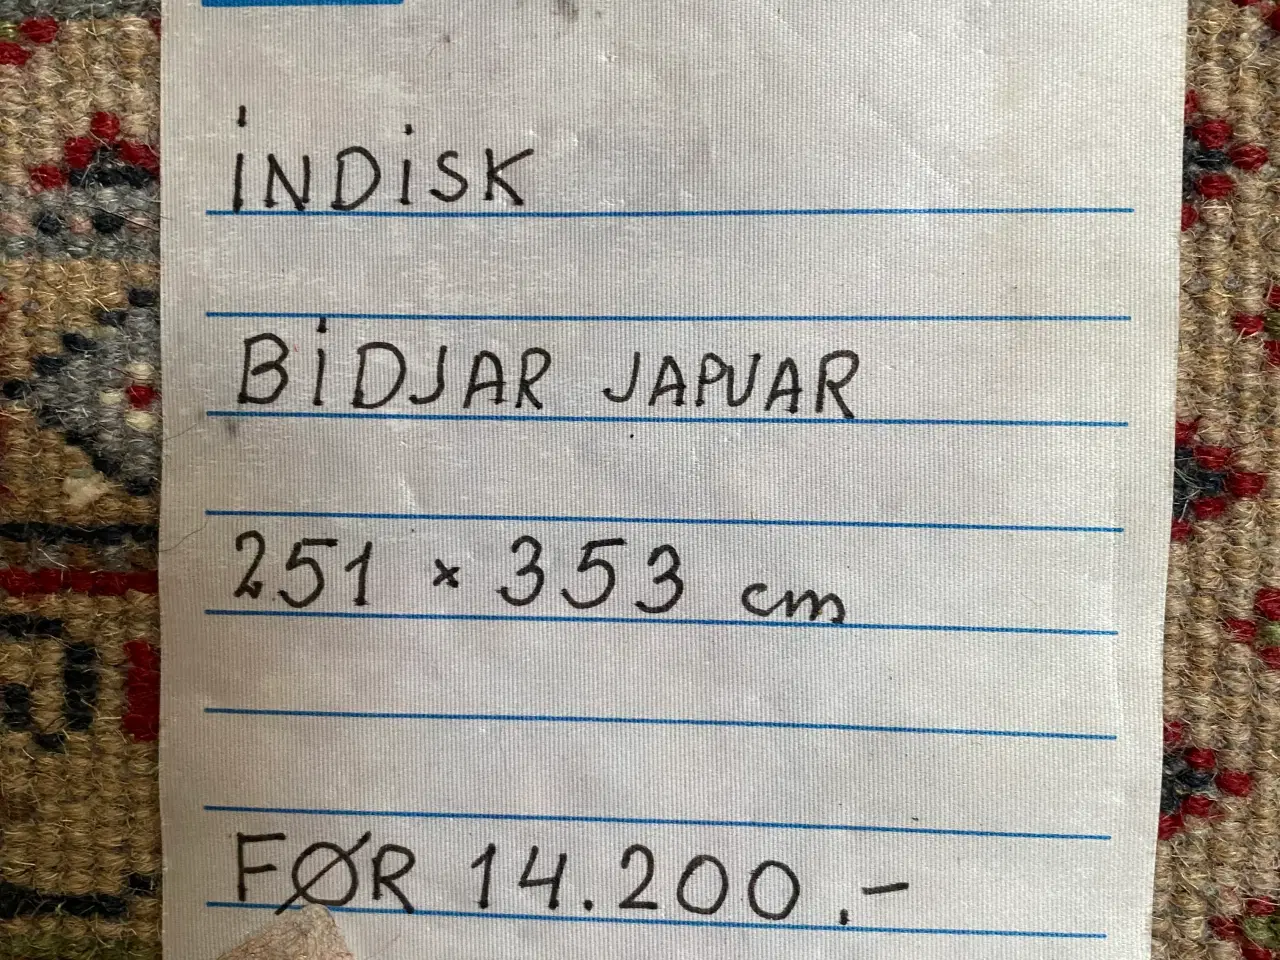 İNDİSK
BİDJAR JAPUAR
251 × 353 cm
FØR 14.200.-